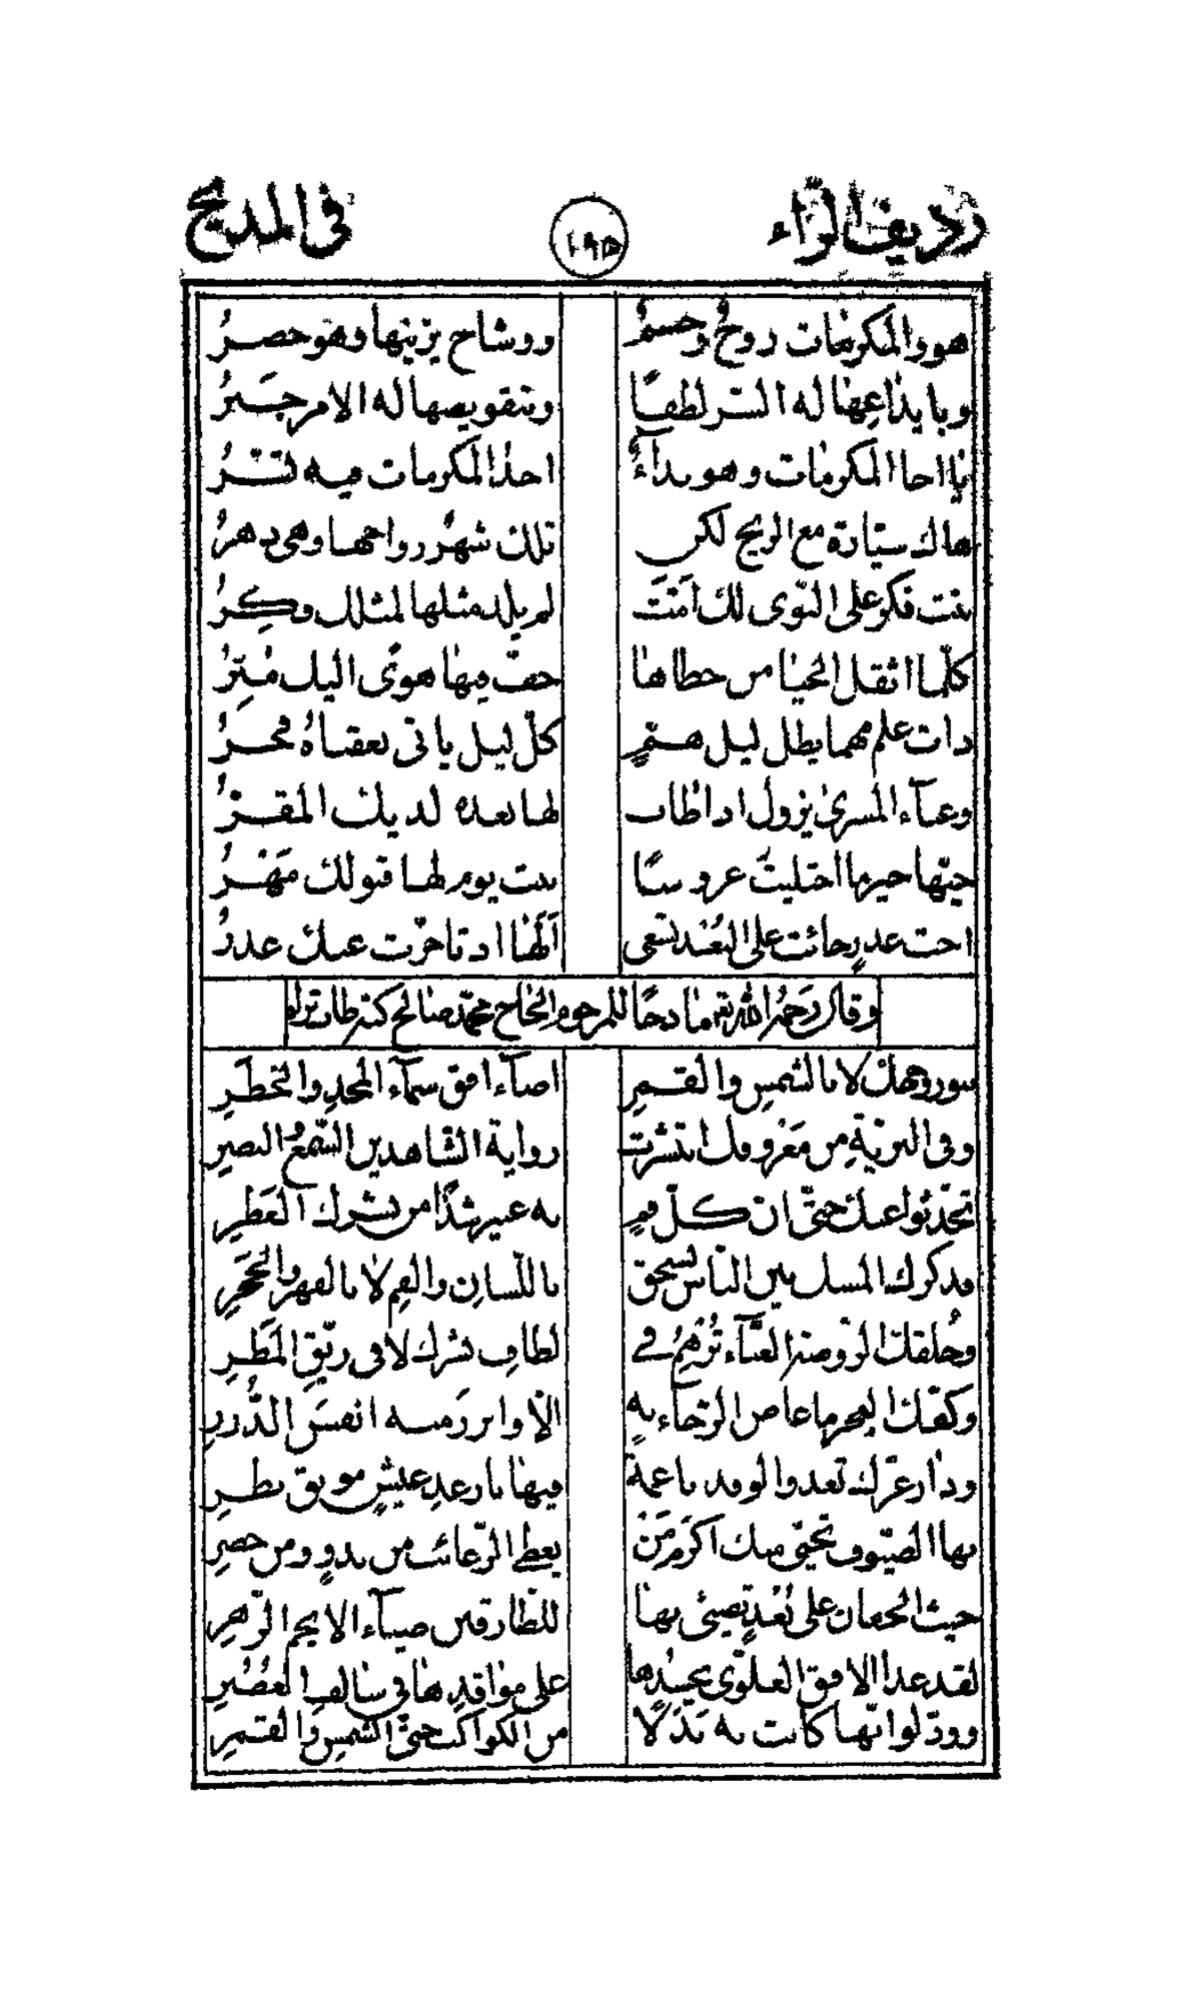 رديف الرّاء ١٩٥ في المديح
هو والمكرمات روحٌ وجسمٌ ووشاح يزينها وهو خصرُ
وبايداعها له السّر لطفًا وبتفويضها له الامر جَبرُ
يا اخا المكرمات وهو نداءٌ احذا المكرمات فيه تسرُّ
هاك سيّارة مع الريح لكن تلك شهرٌ رواحها وهي دهرُ
بنت فكرٍ على النّوى لك امنَتَ لم يلد مثلها لمثلك فِكِرُ
كلّما اثقل الحيا من خطاها خفّ فيها هوىً اليك مُبِرُّ
ذات علم مهما يطل ليل همٍّ كلّ ليل ياتي بعقباهُ فجرُ
وعناء المسرى يزول اذا طاب لها بعده لديك المقرُّ
جئتها خير ما اجتليتَ عروسًا بنت يوم لها قبولك مَهْرُ
اخت عذرٍ جائت على البُعْد تسعى انّها اذ تاخّرت عنك عذرُ
وقال رَحمهُ الله تعم مادحًا للمرحوم الحاج محمّد صالح كبّه طاب ثراه
بنور وجهك لا بالشمسِ والقمرِ اضاء افق سماء المجدِ والخطَرِ
وفي البريّةِ من مَعْروفك انتشرت رواية الشاهدين السّمعُ والبصرِ
تحدّثوا عنك حتّى انّ كلّ فمٍ به عبير شذًا من نشرك العَطِرِ
فذكرك المسك بين النّاس نسحق باللّسانِ والفمِ لا بالفهر والحَجَرِ
وخلقك الروضة الغنّاء تُزهرُ في لطافِ بشرك لا في ريّقِ المَطَرِ
وكفّك البحر ما غاض الرّجاء بهِ الّا وابرزَ منه انفسَ الدُّررِ
ودار عزّك تغدو الوفد ناعمةً فيها بارغدِ عيشٍ مونق نضرِ
بها الضيوف تحيّى منك اكرمَ مَنْ يعطي الرّغائب من بدوٍ ومن حضرِ
حيث الجفان على بُعْدٍ تضيئ بها للطّارقين ضياء الانجم الزّهرِ
لقد غدا الافق العلوّي يحسدُها على مواقدِ ها في سالف العُصُرِ
وودّ لو انّها كانت به بَدَلًا من الكواكب حتّى الشمسِ والقمرِ